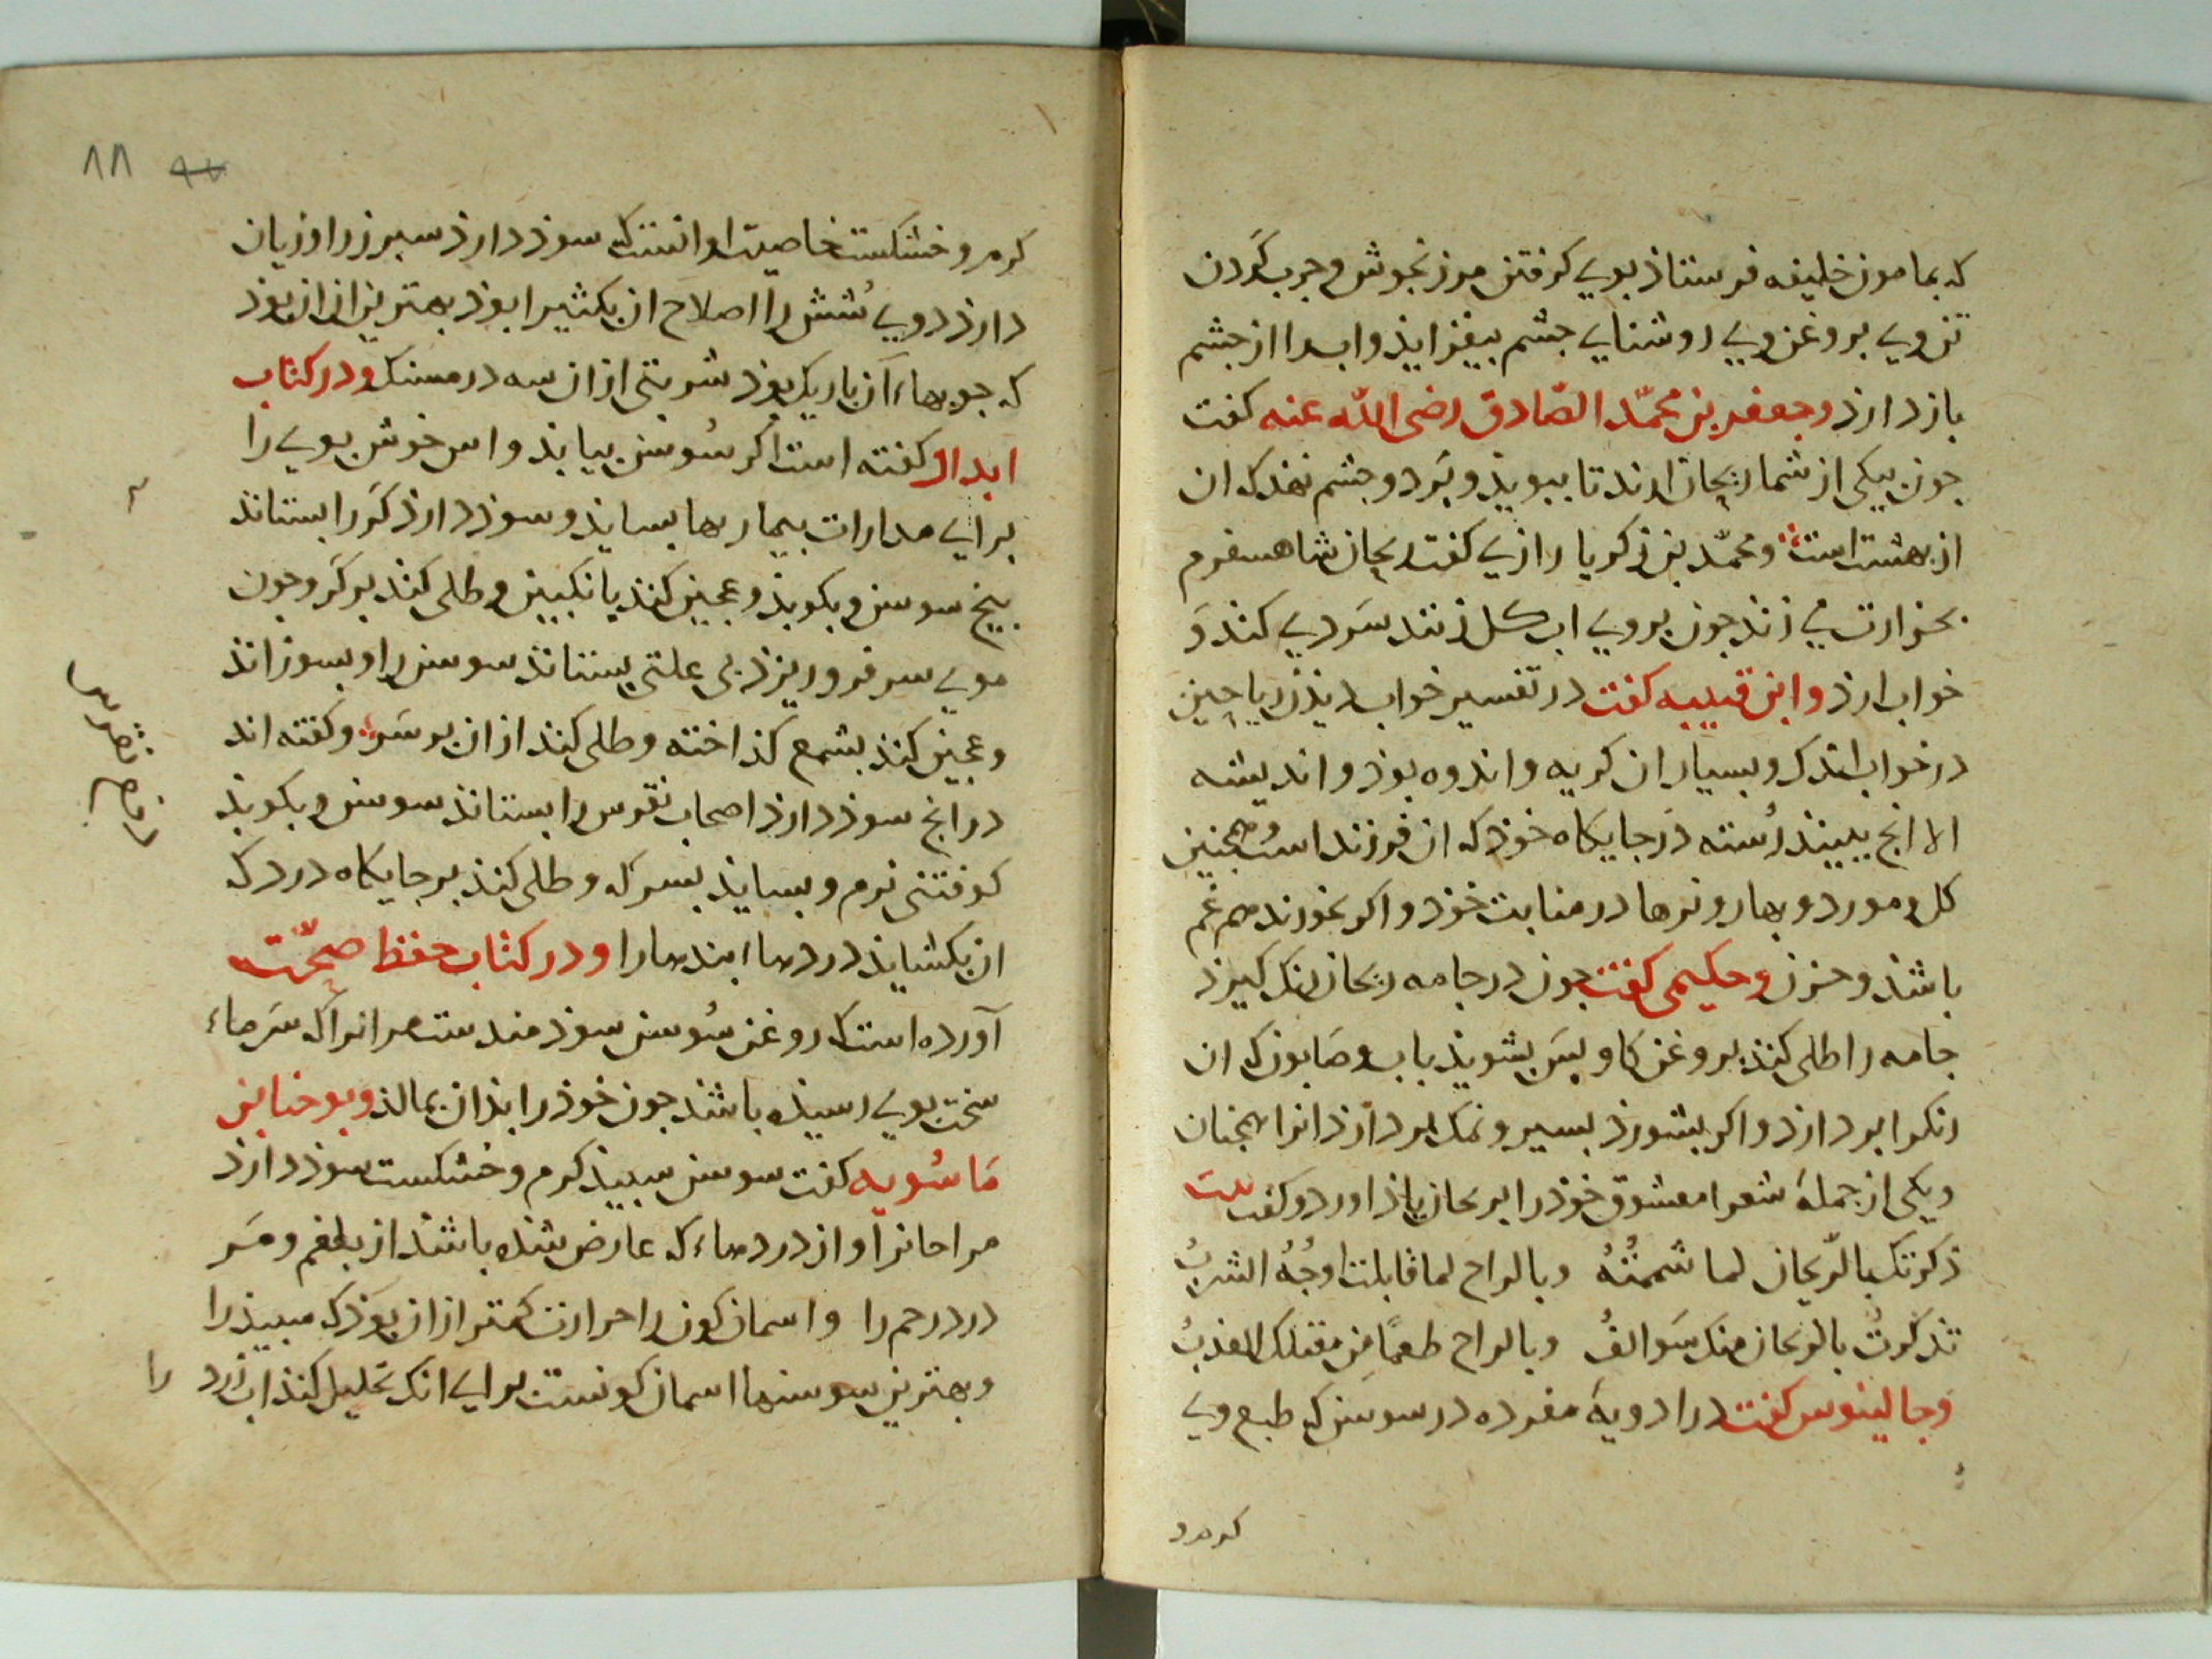 که بمامون خلیفه فرستاذ بوی کرفتن مرزنجوش و جرب کردن
تن وی بروغن وی روشنایی جشم بیفزایذ واب را از جشم
بازدارذ وجعفر بن محمّد الصّادق رضی اللّه عنه کفت
جون بیکی از شما ریحان ارند تا ببویذ و بَر دو جشم نهذ که ان
از بهشت است ومحمّد بن زکریا رازی کفت ریحان شاهسفرم
بحرارت می زند جون بروی اب کل زنند سَردی کند وَ
خواب ارذ وابن قتیبه کفت در تفسیر خواب دیذن ریاحین
در خواب اندک و بسیار ان کریه واندوه بوذ واندیشه
الا انج ببینذ رُسته دَر جایکاه خوذ که ان فرزند است وهمجنین
کل ومورد وبهار ونرها در منابت خوذ واکر بخورند هم غم
باشذ وحزن وحکیمی کفت جون در جامه ریحان رنک کیرذ
جامه را طلی کنذ بروغن کاو بس بشویذ باب وصَابون که ان
رنک را بردارذ واکر بشورذ بسیر ونمک بردارذ انرا همجنان
ویکی از جملهٔ شعرا معشوق خوذ را بریحان یاذ اورد وکفت بیت
ذکرتک بالرّیحان لما شممتُهُ وبالراح لما قابلت اوجُهُ الشربُ
تذکرتُ بالریحان منک سَوالفُ وبالراح طعمًا من مقبلک العذبُ
وجالینوس کفت در ادویهٔ مفرده در سوسن که طبع وی
کرم و
٨٨
کرم وخشکست خاصیت او انست که سوذ دارذ سبرز را وزیان
دارذ روی شُش را اصلاح ان بکثیرا بوذ بهترین ان ان بوذ
که جوبهاء آن باریک بوذ شربتی از ان سه درمسنک ودر کتاب
ابدال کفته است اکر سُوسن بیابذ واس خوش بوی را
برای مدارات بیماریها بسایذ وسوذ دارذ کَر را بستانذ
بیخ سوسن وبکوبذ وعجین کنذ بانکبین وطلی کنذ بر کَر وجون
موی سر فرو ریزذ بی علتی بستانذ سوسن را وبسوزانذ
وعجین کنذ بشمع کذاخته وطلی کنذ از ان بر سَر وکفته اند
درانج سوذ دارذ اصحاب نقرس را بستانذ سوسن وبکوبذ
کوفتنی نرم وبسایذ بسرکه وطلی کنذ بر جایکاه درد که
ان بکشایذ دردهاء بندها را ودر کتاب حفظ صحّت
آورده است که روغن سُوسن سوذمندست مر انرا که سَرماء
سخت بوی رسیذه باشذ جون خوذ را بذان بمالذ ویوحنا بن
مَاسُویه کفت سوسن سبیذ کرم وخشکست سوذ دارذ
مر احانرا واز دردهاء که عارض شذه باشذ از بلغم ومَر
درد رحم را واسمان کون را حرارت کمتر از ان بوَذ که سبیذ را
وبهترین سوسنها اسمان کونست برای انک تحلیل کنذ اب زرد را